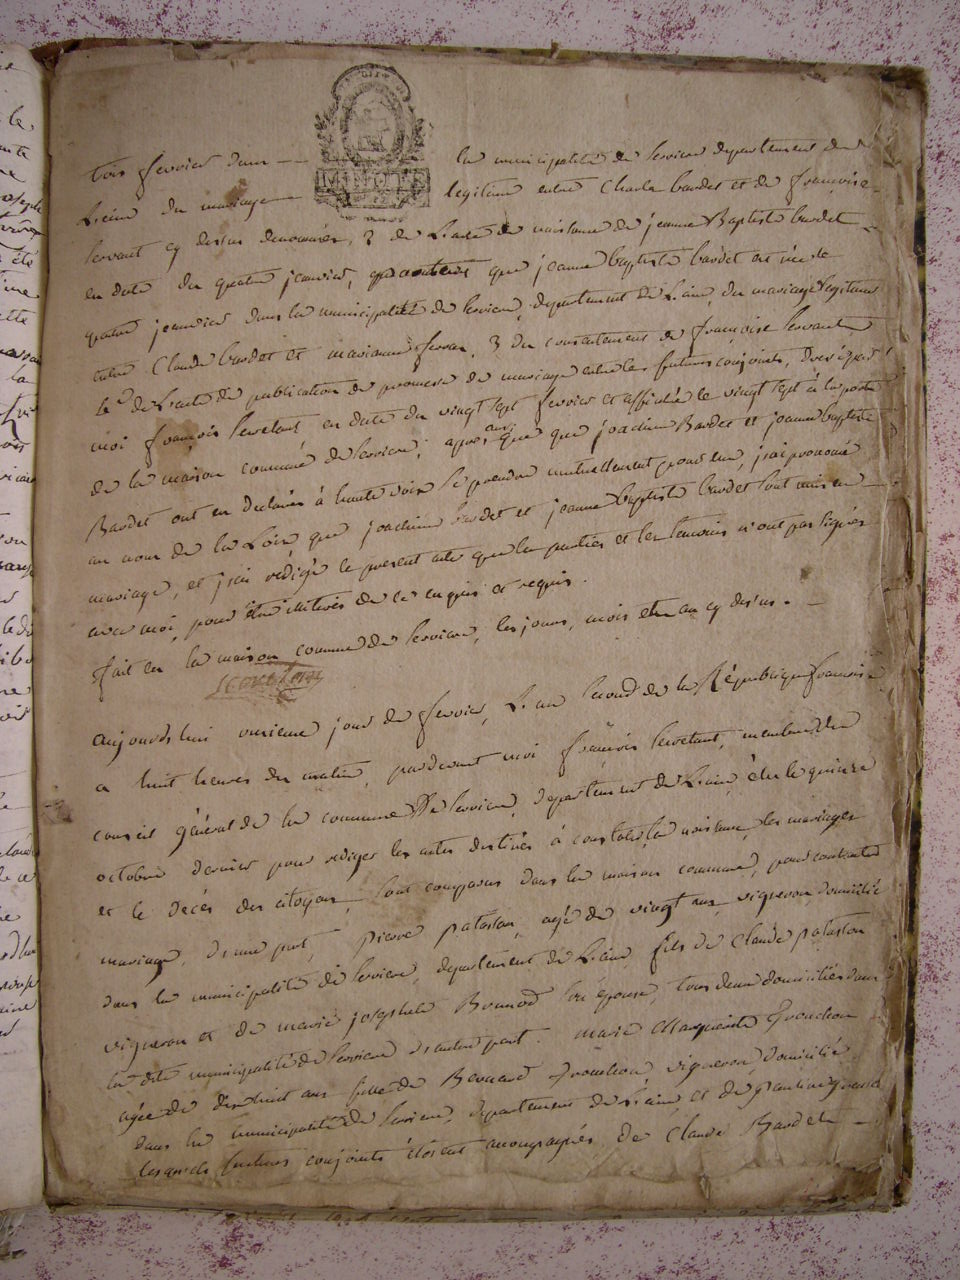 trois fevrier dans — la municipalité de Serrieres departement de
L'ain du mariage — legitime entre Charle bardet et de françoise
Servant cy dessus denommés, 2 de L'acte de naissance de jeanne Baptiste bardet
en date du quatre janvier, qui contient que jeanne baptiste bardet est née le
quatre janvier dans la municipalité de Serriere, departement de L'ain, du mariage legitime
entre Claude bardet et marianne 3 du consentement de françoise Servant
4° de L'acte de publication de promesse de mariage entre les futurs conjoints, dressé par
moi françois Servetant en date du vingt sept fevrier et affichée le vingt sept à la porte
de la maison commune de Serriere, apres aussi que joachim Bardet et jeanne baptiste
Bardet ont eu declarés à haute voix se prendre mutuellement pour epoux, j'ai prononcé
au nom de la Loix que joachim bardet et jeanne baptiste bardet sont unis en
mariage, et j'ai redigé le present acte que les parties et les temoins n'ont pas signés
avec moi, pour être illiterés de ce enquis et requis.
fait en la maison commune de Serriere, les jours, mois et an cy dessus. —
Aujourd'hui onzieme jour de fevrier, L'an second de la République françoise
a huit heures du matin, pardevant moi françois Servetant, membre du
conseil général de la commune de Serriere, departement de L'ain, élu le quinze
octobre dernier pour rediger les actes destinés à constater la naissance, les mariages
et le décés des citoyens, sont comparus dans la maison commune, pour contracter
mariage, d'une part, pierre patasson, agé de vingt ans, vigneron, domicilié
dans la municipalité de Serriere, departement de L'ain, fils de Claude patasson
vigneron et de marie josephte Brunod son épouse, tous deux domiciliés dans
la dite municipalité de Serriere d'autre part. marie Marguerite
agée de dix huit ans fille de Bernard vigneron, domicilié
dans la municipalité de Serriere, departement de L'ain, et de pauline
lesquels futurs conjoints étoient accompagnés de Claude Bardet —